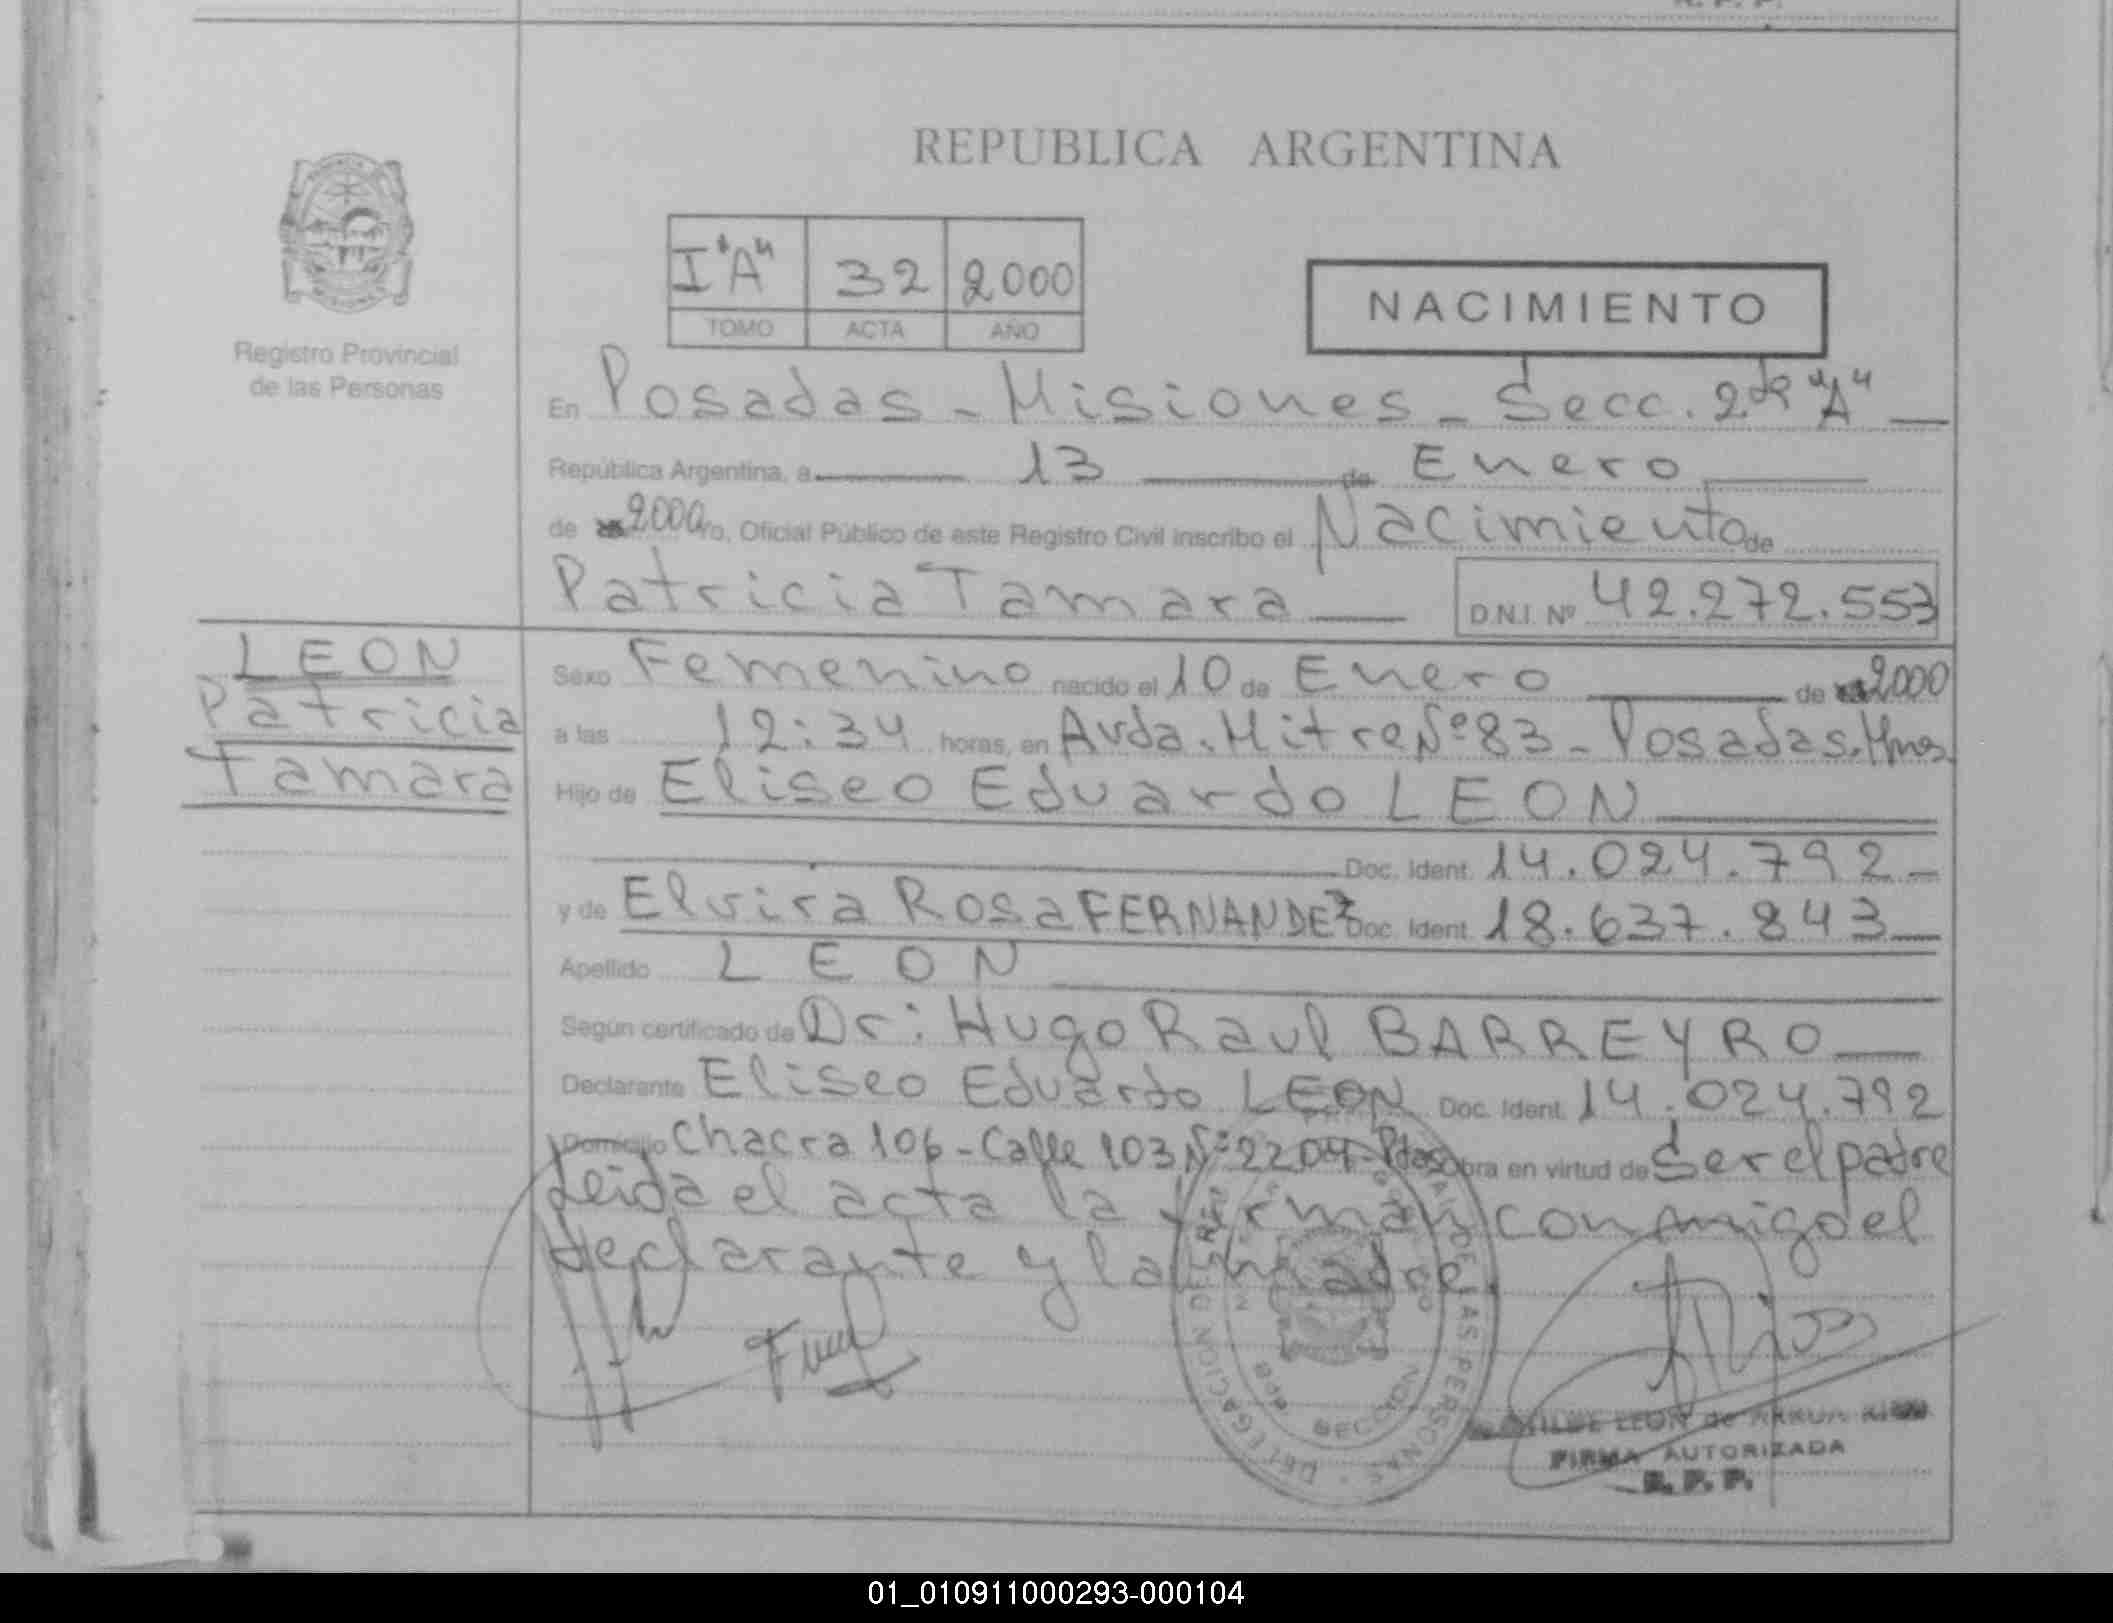 REPUBLICA ARGENTINA
I "A" 32 2000
TOMO ACTA AÑO
NACIMIENTO
Registro Provincial
de las Personas
En Posadas - Misiones - Secc. 2da "A"
República Argentina, a 13 de Enero
de 2000 yo, Oficial Público de este Registro Civil inscribo el Nacimiento de
Patricia Tamara D.N.I. Nº 42.272.553
LEON
Patricia
Tamara
Sexo Femenino nacido el 10 de Enero de 2000
a las 12:34 horas, en Avda. Mitre Nº 83 - Posadas. Mnes.
Hijo de Eliseo Eduardo LEON
Doc. Ident. 14.024.792 -
y de Elvira Rosa FERNANDEZ Doc. Ident. 18.637.843
Apellido LEON
Según certificado de Dr: Hugo Raul BARREYRO
Declarante Eliseo Eduardo LEON Doc. Ident. 14.024.792
Domicilio Chacra 106 - Calle 103 Nº 2204 - Pdas obra en virtud de Ser el padre
Leida el acta la firman conmigo el
declarante y la madre.
DELEGACION DEL REG DE LAS PERSONAS
SECCION
LEON de
FIRMA AUTORIZADA
R. P. P.
01_010911000293-000104